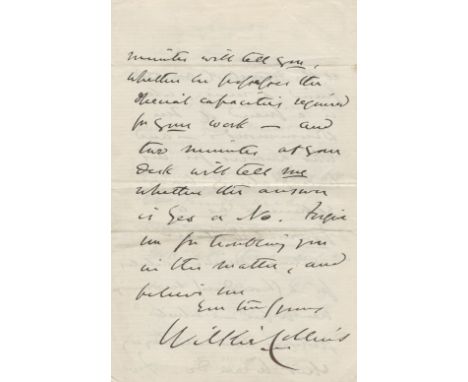 minutes will tell you,
whether he possesses the
special capacities required
for your work — and
two minutes at your
desk will tell me
whether the answer
is Yes or No. Forgive
me for troubling you
in this matter, and
believe me
Ever truly yours
Wilkie Collins